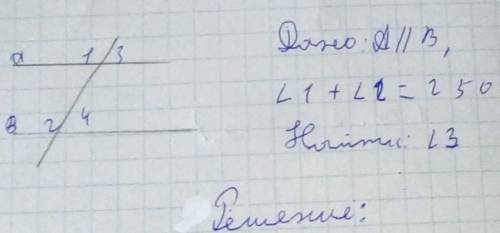 a 1 3
Дано: A // B,
∠1 + ∠2 = 250
в 2 4
Найти: ∠3
Решение: